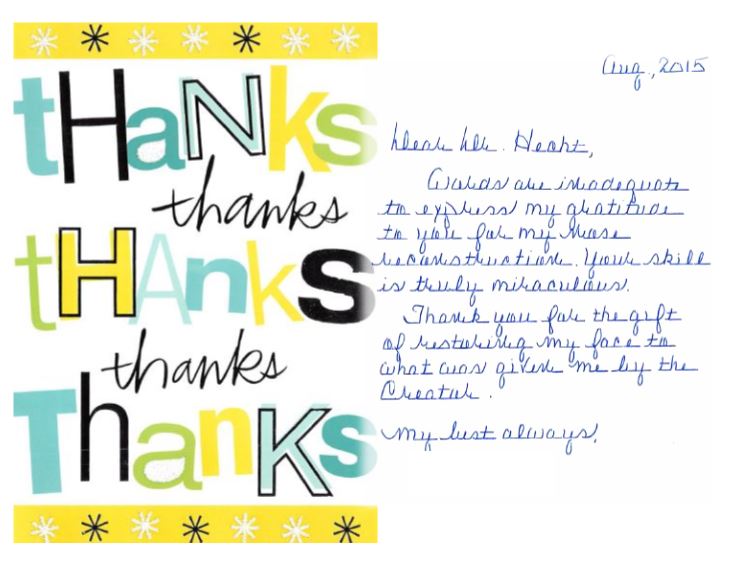 tHaNks
thanks
tHAnks
thanks
ThanKs
Aug., 2015
Dear Dr. Hecht,
Words are inadequate
to express my gratitude
to you for my nose
reconstruction. Your skill
is truly miraculous.
Thank you for the gift
of restoring my face to
what was given me by the
Creator.
My best always,